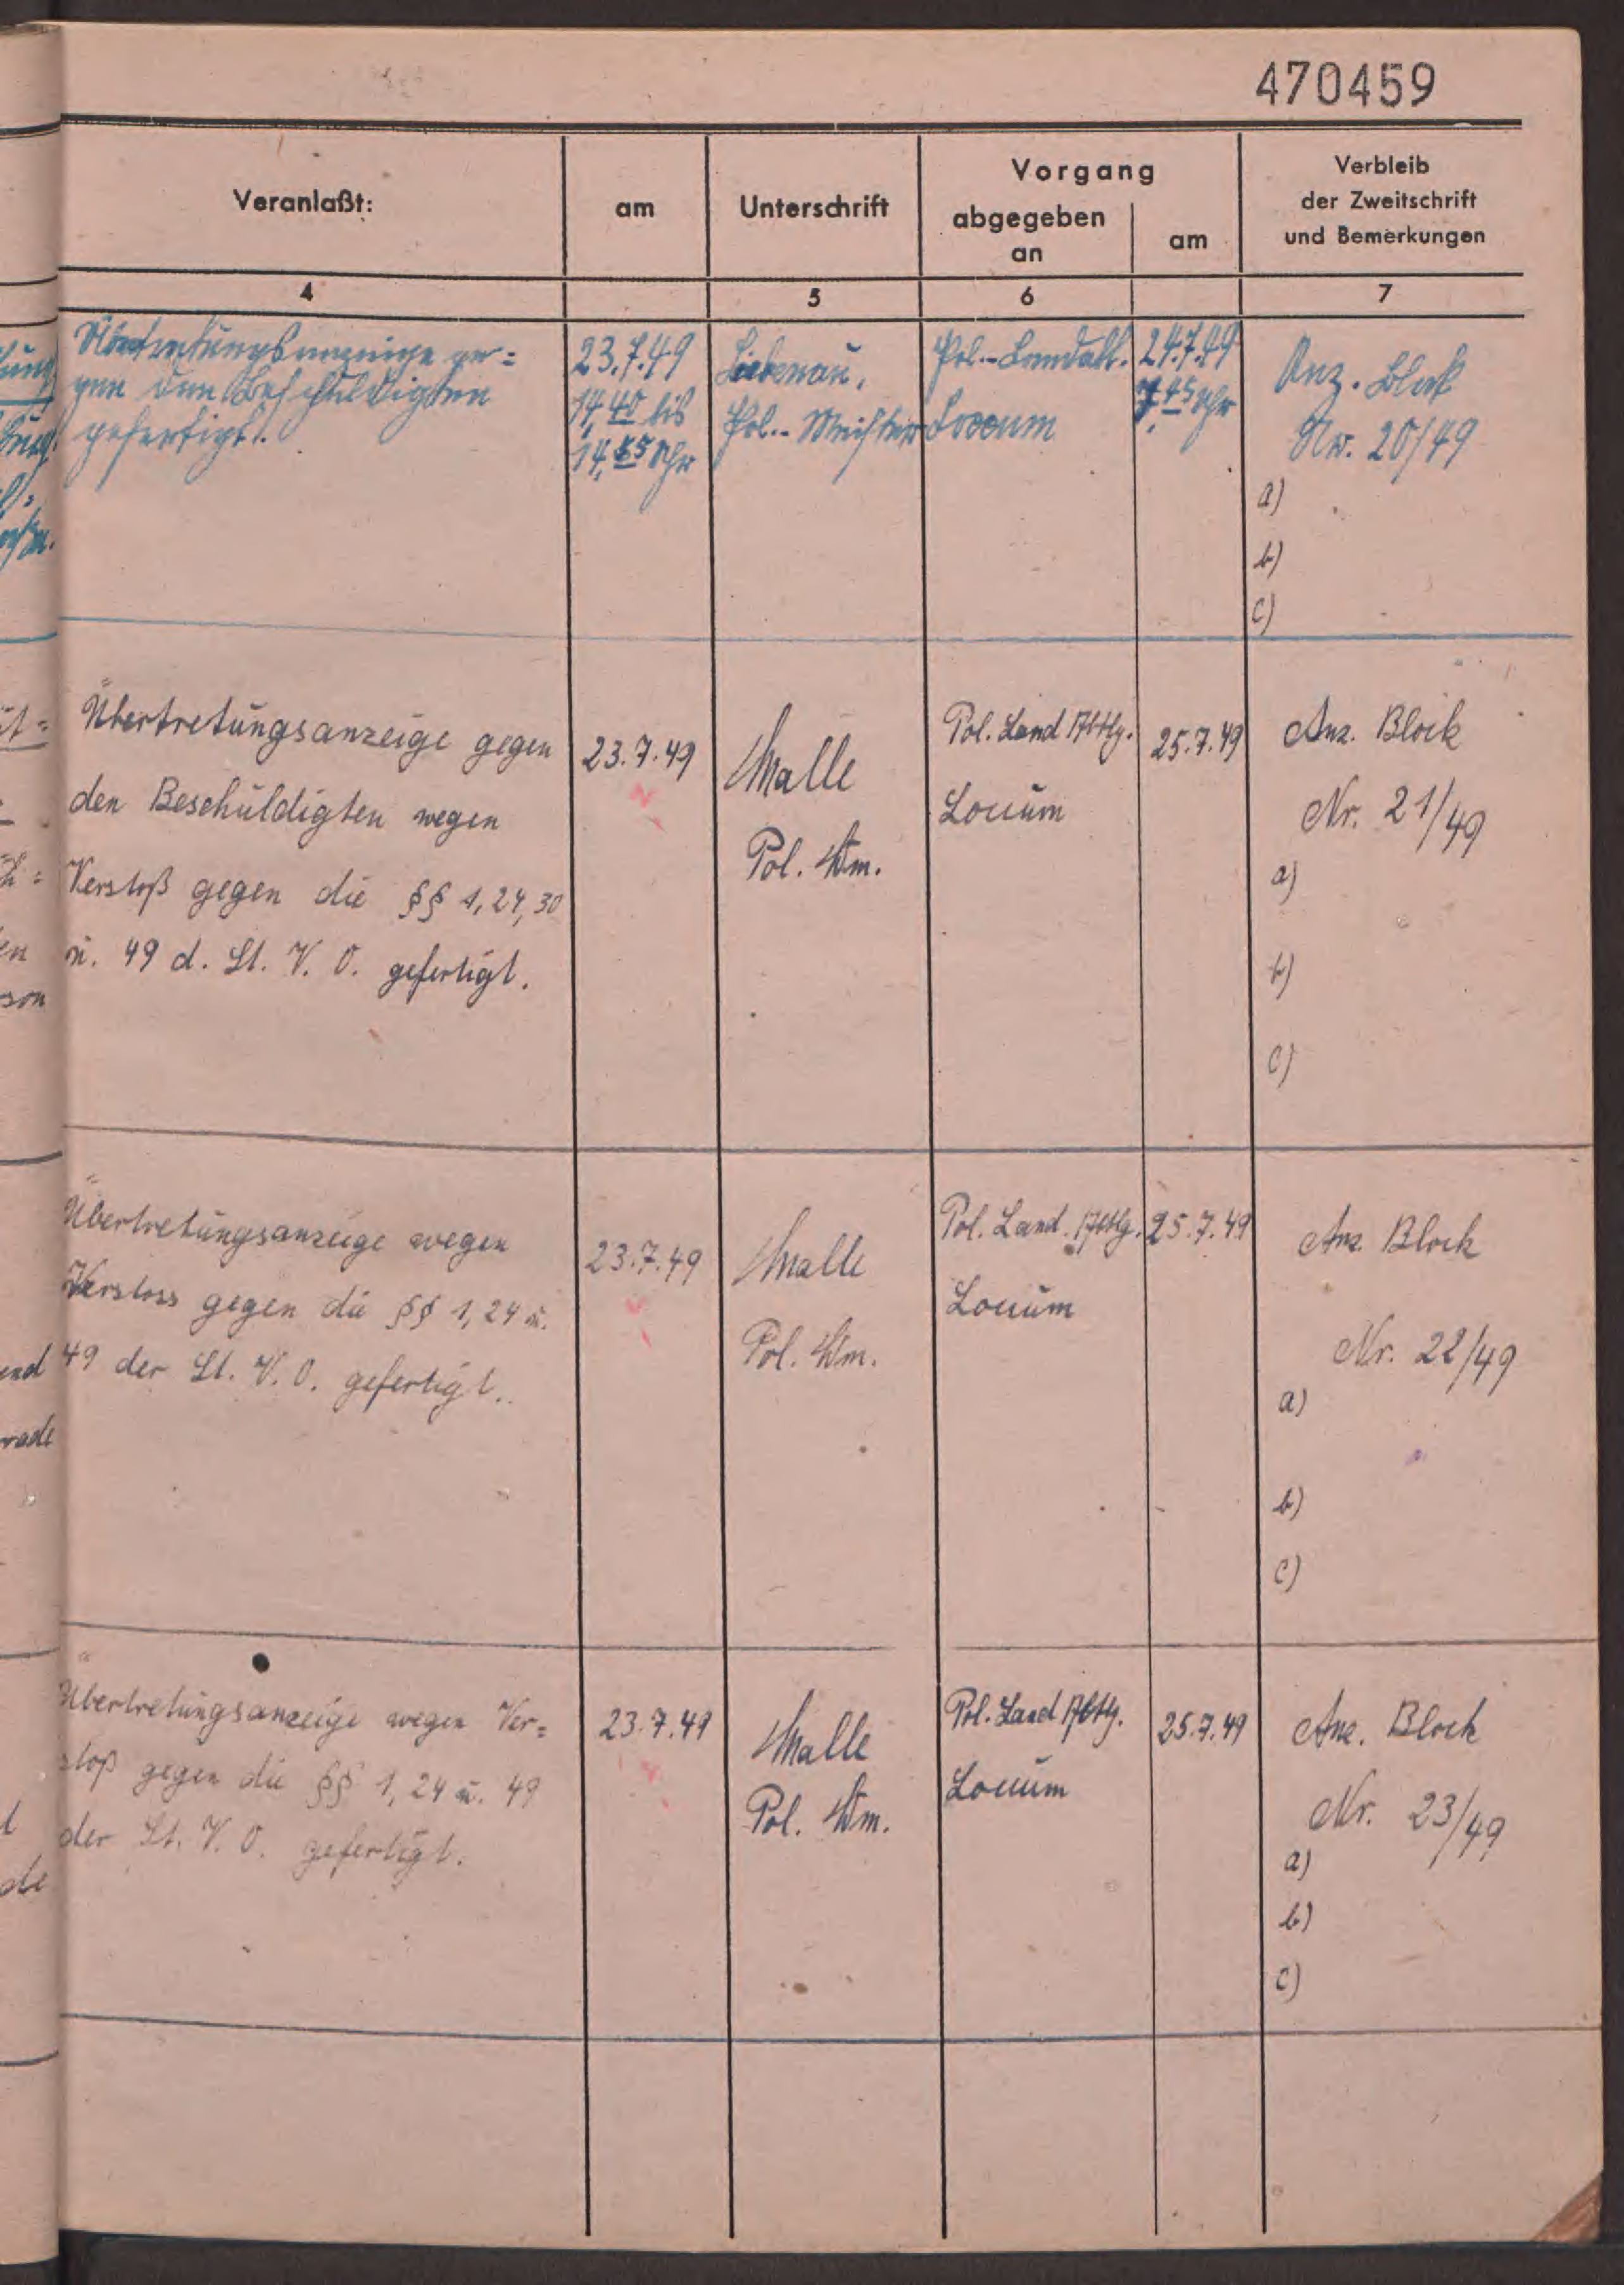 470459
Veranlaßt:
am
Unterschrift
Vorgang
abgegeben
an
am
Verbleib
der Zweitschrift
und Bemerkungen
4
5
6
7
Übertretungsanzeige ge=
gen den Beschuldigten
gefertigt.
23.7.49
14,40 bis
14,55 Uhr
Liebenau,
Pol.-Meister
Pol.-Landabt.
Loccum
24.7.49
7,45 Uhr
Anz. Block
Nr. 20/49
a)
b)
c)
Übertretungsanzeige gegen
den Beschuldigten wegen
Verstoß gegen die §§ 1, 24, 30
u. 49 d. St. V. O. gefertigt.
23.7.49
Malle
Pol. Wm.
Pol. Land Abtlg.
Loccum
25.7.49
Anz. Block
Nr. 21/49
a)
b)
c)
Übertretungsanzeige wegen
Verstoss gegen die §§ 1, 24 u.
49 der St. V. O. gefertigt.
23.7.49
Malle
Pol. Wm.
Pol. Land. Abtlg.
Loccum
25.7.49
Anz. Block
Nr. 22/49
a)
b)
c)
Übertretungsanzeige wegen Ver=
stoß gegen die §§ 1, 24 u. 49
der St. V. O. gefertigt.
23.7.49
Malle
Pol. Wm.
Pol. Land Abtlg.
Loccum
25.7.49
Anz. Block
Nr. 23/49
a)
b)
c)